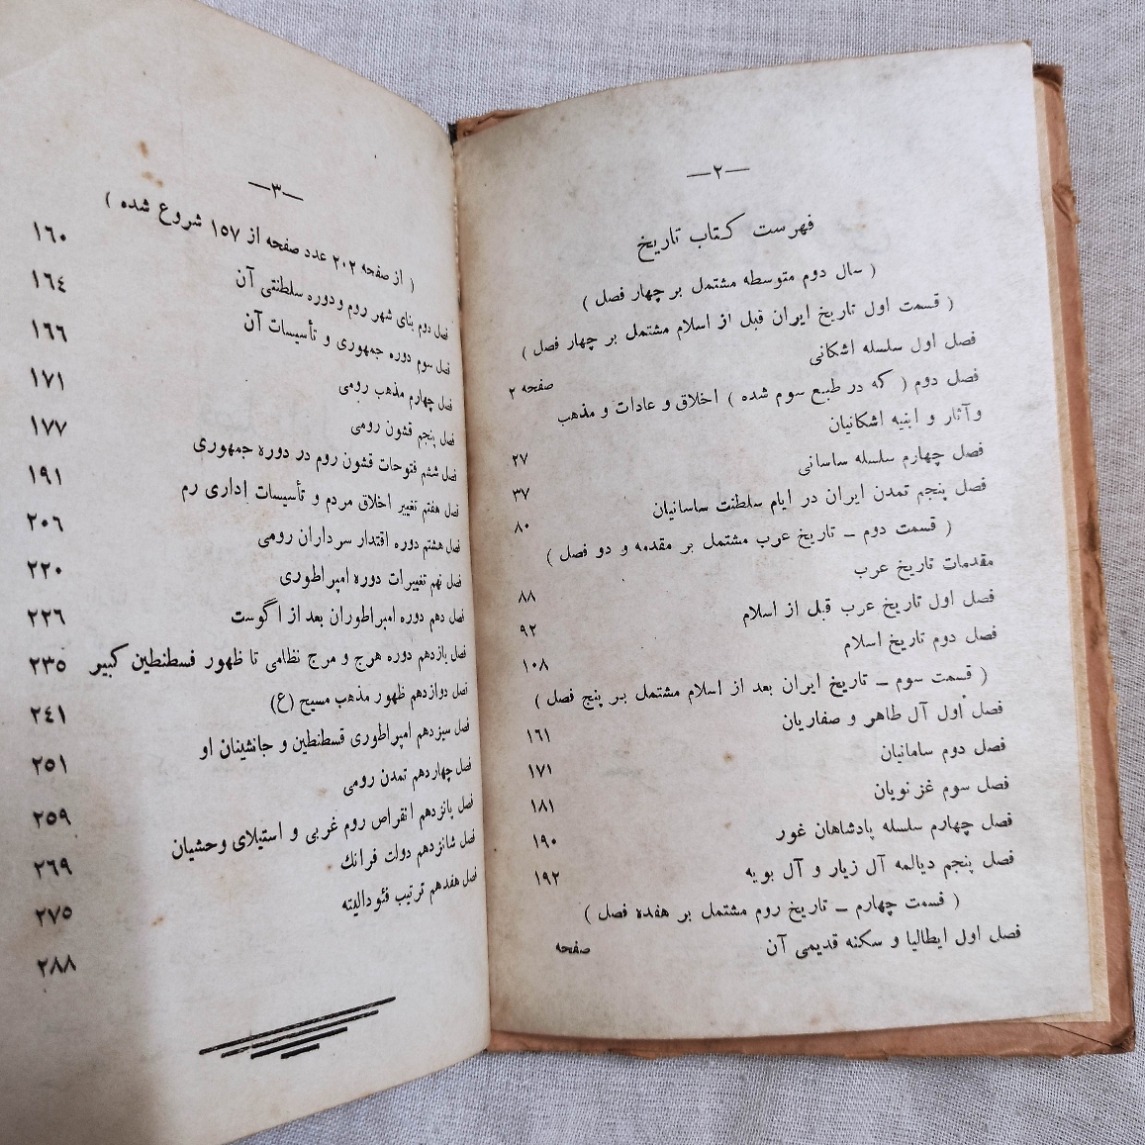 —٢—
فهرست كتاب تاريخ
( سال دوم متوسطه مشتمل بر چهار فصل )
( قسمت اول تاريخ ايران قبل از اسلام مشتمل بر چهار فصل )
فصل اول سلسله اشكانى صفحه ٢
فصل دوم ( كه در طبع سوم شده ) اخلاق و عادات و مذهب
و آثار و ابنيه اشكانيان ٢٧
فصل چهارم سلسله ساسانى ٣٧
فصل پنجم تمدن ايران در ايام سلطنت ساسانيان ٨٠
( قسمت دوم ــ تاريخ عرب مشتمل بر مقدمه و دو فصل )
مقدمات تاريخ عرب ٨٨
فصل اول تاريخ عرب قبل از اسلام ٩٢
فصل دوم تاريخ اسلام ١٠٨
( قسمت سوم ــ تاريخ ايران بعد از اسلام مشتمل بر پنج فصل )
فصل اول آل طاهر و صفاريان ١٦١
فصل دوم سامانيان ١٧١
فصل سوم غزنويان ١٨١
فصل چهارم سلسله پادشاهان غور ١٩٠
فصل پنجم ديالمه آل زيار و آل بويه ١٩٢
( قسمت چهارم ــ تاريخ روم مشتمل بر هفده فصل )
فصل اول ايطاليا و سكنه قديمى آن صفحه
—٣—
( از صفحه ٢٠٢ عدد صفحه از ١٥٧ شروع شده ) ١٦٠
فصل دوم بناى شهر روم و دوره سلطنتى آن ١٦٤
فصل سوم دوره جمهورى و تأسيسات آن ١٦٦
فصل چهارم مذهب رومى ١٧١
فصل پنجم قشون رومى ١٧٧
فصل ششم فتوحات قشون روم در دوره جمهورى ١٩١
فصل هفتم تغيير اخلاق مردم و تأسيسات ادارى رم ٢٠٦
فصل هشتم دوره اقتدار سرداران رومى ٢٢٠
فصل نهم تغييرات دوره امپراطورى ٢٢٦
فصل دهم دوره امپراطوران بعد از اگوست ٢٣٥
فصل يازدهم دوره هرج و مرج نظامى تا ظهور قسطنطين كبير ٢٤١
فصل دوازدهم ظهور مذهب مسيح (ع) ٢٥١
فصل سيزدهم امپراطورى قسطنطين و جانشينان او ٢٥٩
فصل چهاردهم تمدن رومى ٢٦٩
فصل پانزدهم انقراض روم غربى و استيلاى وحشيان ٢٧٥
فصل شانزدهم دولت فرانك ٢٨٨
فصل هفدهم ترتيب فئوداليته